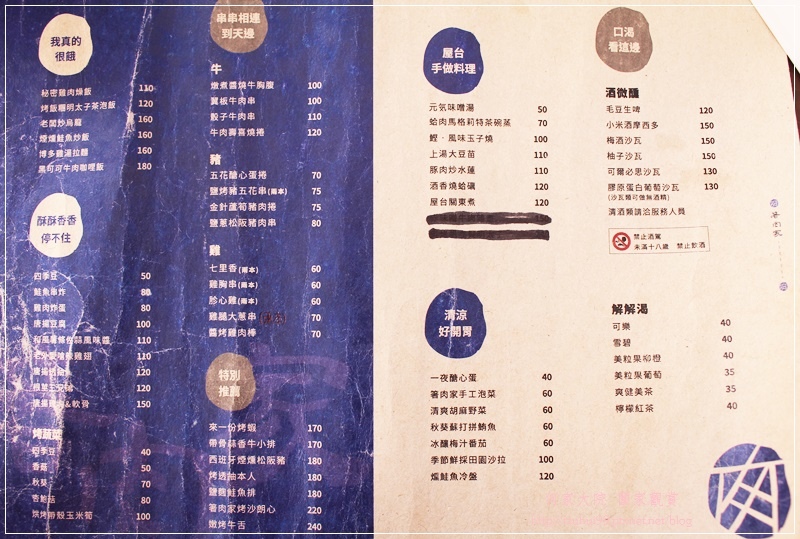 我真的
很餓
秘密雞肉燥飯 110
烤飯糰明太子茶泡飯 120
老闆炒烏龍 160
煙燻鮭魚炒飯 160
博多雞湯拉麵 160
黑可可牛肉咖哩飯 180
酥酥香香
停不住
四季豆 50
鮭魚串炸 80
雞肉炸蛋 80
唐揚豆腐 100
和風薯條佐蒜風味醬 110
雞翅 110
120
120
唐揚雞肉&軟骨 150
烤蔬菜
四季豆 40
香菇 50
秋葵 70
杏鮑菇 80
烘烤帶殼玉米筍 100
串串相連
到天邊
牛
燉煮醬燒牛胸腹 100
翼板牛肉串 100
骰子牛肉串 110
牛肉壽喜燒捲 120
豬
五花醣心蛋捲 70
鹽烤豬五花串(兩本) 75
金針蘆筍豬肉捲 75
鹽蔥松阪豬肉串 80
雞
七里香(兩本) 60
雞胸串(兩本) 60
胗心雞(兩本) 60
雞腿大蔥串 70
醬烤雞肉棒 70
特別
推薦
來一份烤蝦 170
帶骨蒜香牛小排 170
西班牙煙燻松阪豬 180
烤透抽本人 180
鹽麴鮭魚排 180
薯肉家烤沙朗心 220
嫩烤牛舌 240
屋台
手做料理
元気味噌湯 50
蛤肉馬格莉特茶碗蒸 70
鰹・風味玉子燒 100
上湯大豆苗 110
豚肉炒水蓮 110
酒香燒蛤蠣 120
屋台關東煮 120
清涼
好開胃
一夜醣心蛋 40
薯肉家手工泡菜 60
清爽胡麻野菜 60
秋葵蘇打拼鮪魚 60
冰釀梅汁番茄 60
季節鮮採田園沙拉 100
熅鮭魚冷盤 120
口渴
看這邊
酒微醺
毛豆生啤 120
小米酒摩西多 150
梅酒沙瓦 150
柚子沙瓦 150
可爾必思沙瓦 130
膠原蛋白葡萄沙瓦 130
(沙瓦類可做無酒精)
清酒類請洽服務人員
禁止酒駕
未滿十八歲 禁止飲酒
解解渴
可樂 40
雪碧 40
美粒果柳橙 40
美粒果葡萄 35
爽健美茶 35
檸檬紅茶 40
肉